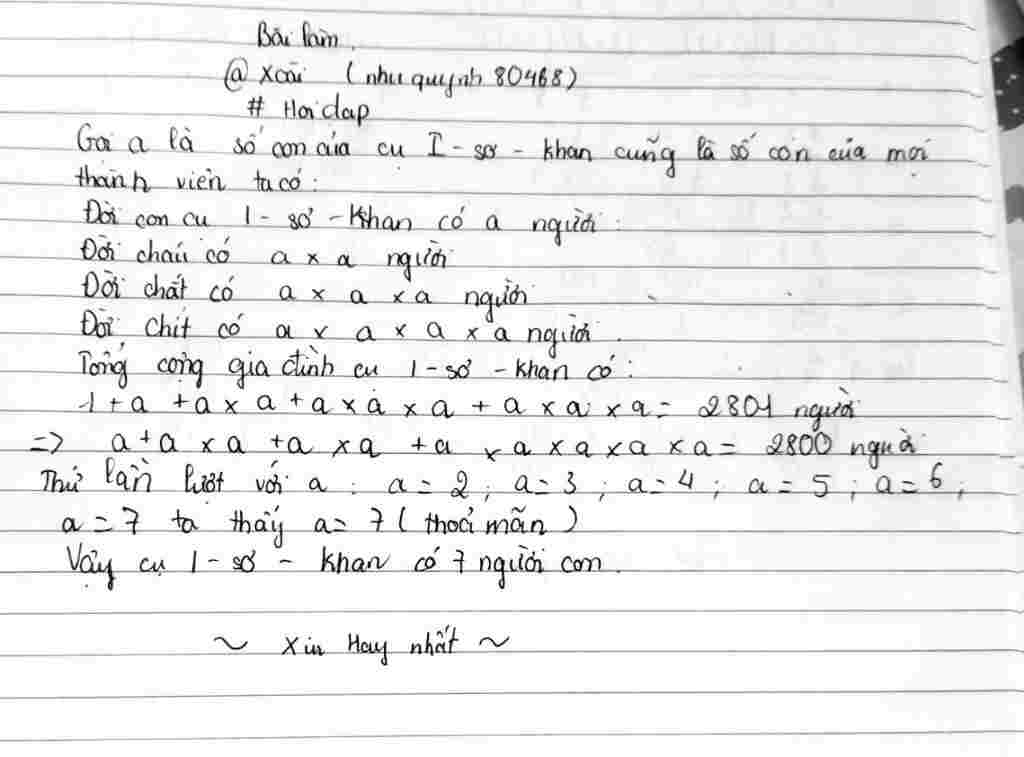 Bài làm.
@ Xoài (nhuquynh80468)
# Hoidap
Gọi a là số con của cụ I - sơ - khan cũng là số con của mọi
thành viên ta có:
Đời con cụ I - sơ - Khan có a người:
Đời cháu có a x a người
Đời chắt có a x a x a người
Đời chít có a x a x a x a người.
Tổng cộng gia đình cụ I - sơ - khan có:
1 + a + a x a + a x a x a + a x a x a = 2801 người
=> a + a x a + a x a + a x a x a x a x a = 2800 người
Thử lần lượt với a : a = 2 ; a = 3 ; a = 4 ; a = 5 ; a = 6 ;
a = 7 ta thấy a = 7 ( thoả mãn )
Vậy cụ I - sơ - khan có 7 người con.
~ Xin Hay nhất ~